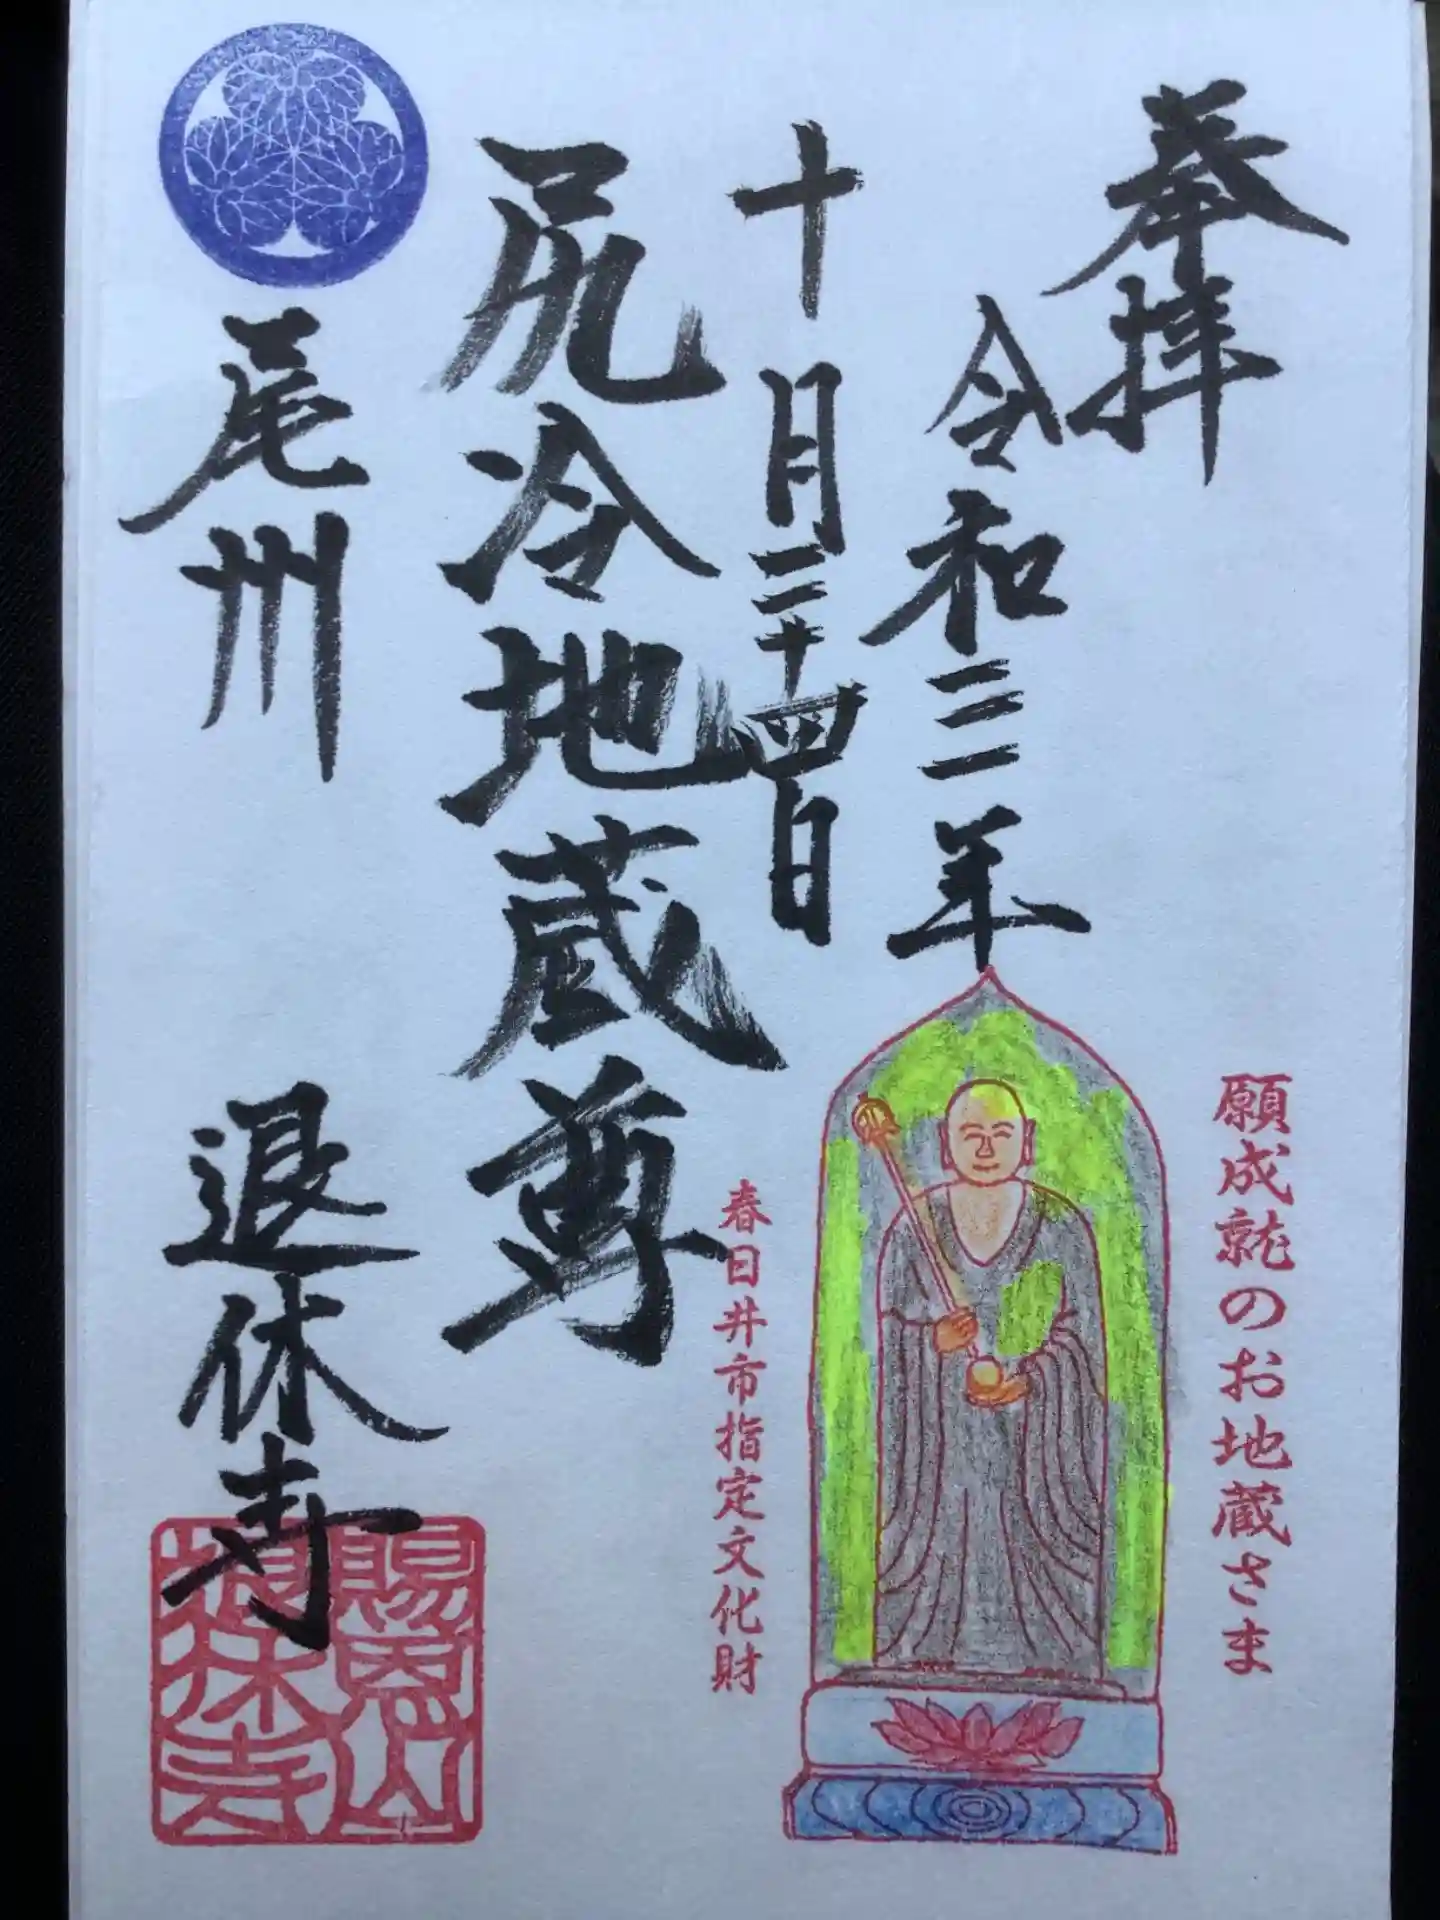 願成就のお地蔵さま
奉拝
令和三年
十月二十四日
春日井市指定文化財
尻冷地蔵尊
尾州 退休寺
賜恩山
退休寺